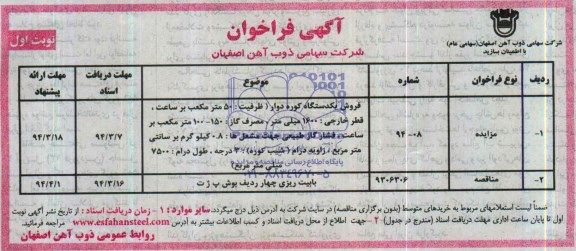 آگهی فراخوان
شرکت سهامی ذوب آهن اصفهان
نوبت اول
شرکت سهامی ذوب آهن اصفهان (سهامی عام)
با اطمینان بسازید
ردیف
نوع فراخوان
شماره
موضوع
مهلت دریافت اسناد
مهلت ارائه پیشنهاد
۱-
مزایده
۹۴-۰۸
فروش یکدستگاه کوره دوار (ظرفیت: ۵۰ متر مکعب بر ساعت،
قطر خارجی: ۱۶۰۰ میلی متر، مصرف گاز: ۱۵۰-۱۰۰ متر مکعب بر
ساعت، فشار گاز طبیعی جهت مشعل ها: ۰.۸ کیلو گرم بر سانتی
متر مربع، زاویه درام (شیب کوره): ۳ درجه، طول درام: ۷۵۰۰
میلی متر مربع)
۹۴/۳/۷
۹۴/۳/۱۸
۲-
مناقصه
۹۳۰۶۳۰۶
بابیت ریزی چهار ردیف بوش پ ژ ت
۹۴/۳/۱۶
۹۴/۴/۱
پایگاه اطلاع رسانی مناقصه و مزایده
ضمناً لیست استعلامهای مربوط به خریدهای متوسط (بدون برگزاری مناقصه) در سایت شرکت به آدرس ذیل درج میگردد. سایر موارد: ۱- زمان دریافت اسناد: از تاریخ نشر آگهی نوبت
اول تا پایان ساعت اداری مهلت دریافت اسناد (مندرج در جدول) ۲- جهت اطلاع از محل دریافت اسناد و کسب اطلاعات بیشتر به آدرس www.esfahansteel.com مراجعه فرمائید.
روابط عمومی ذوب آهن اصفهان